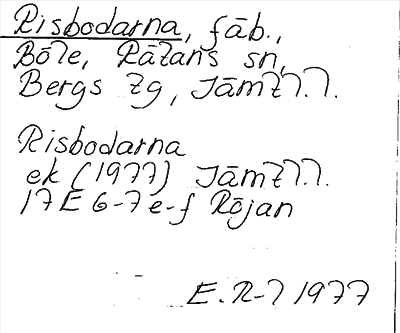 Risbodarna, fäb.,
Böle, Rätans sn,
Bergs tg, Jämtl.l.
Risbodarna
ek (1977) Jämtl.l.
17E 6-7e-f Röjan
E.R-l 1977